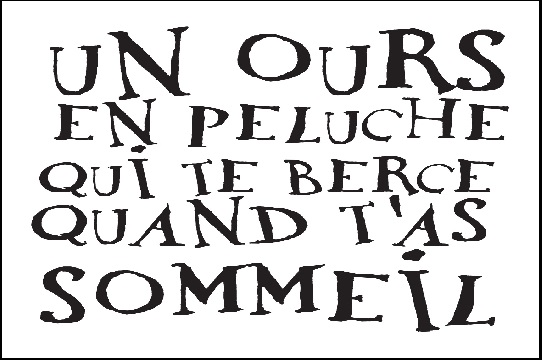 UN OURS
EN PELUCHE
QUi TE BERCE
QUAND T'AS
SOMMEiL